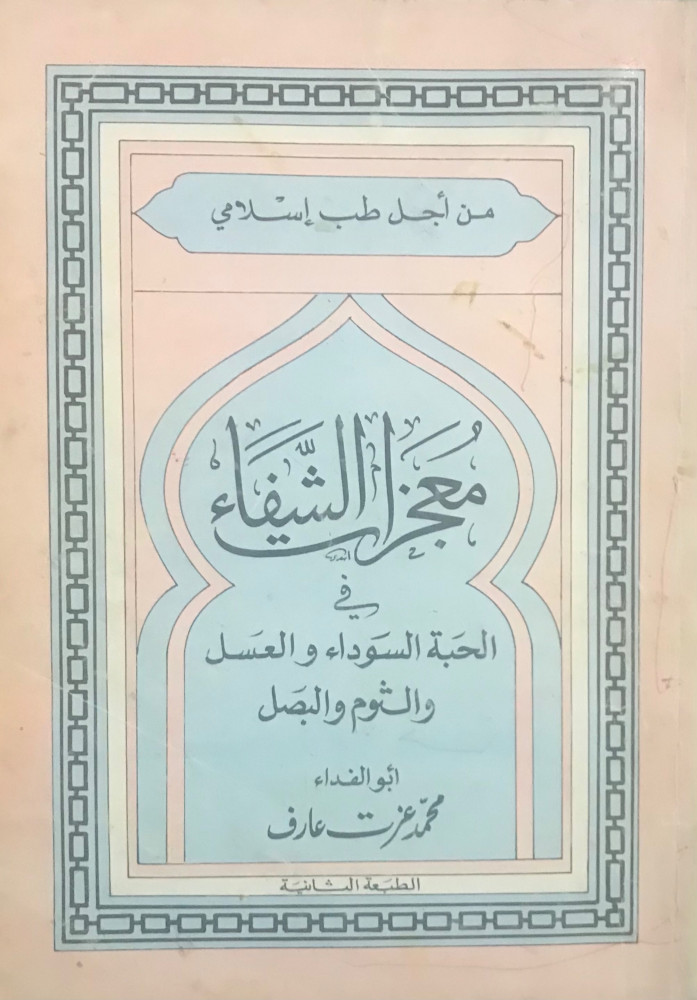 من أجل طب إسلامي
معجزات الشِّفَاء
في
الحبة السوداء والعسل
والثوم والبصل
أبو الفداء
محمّد عزت عارف
الطبعة الثانية